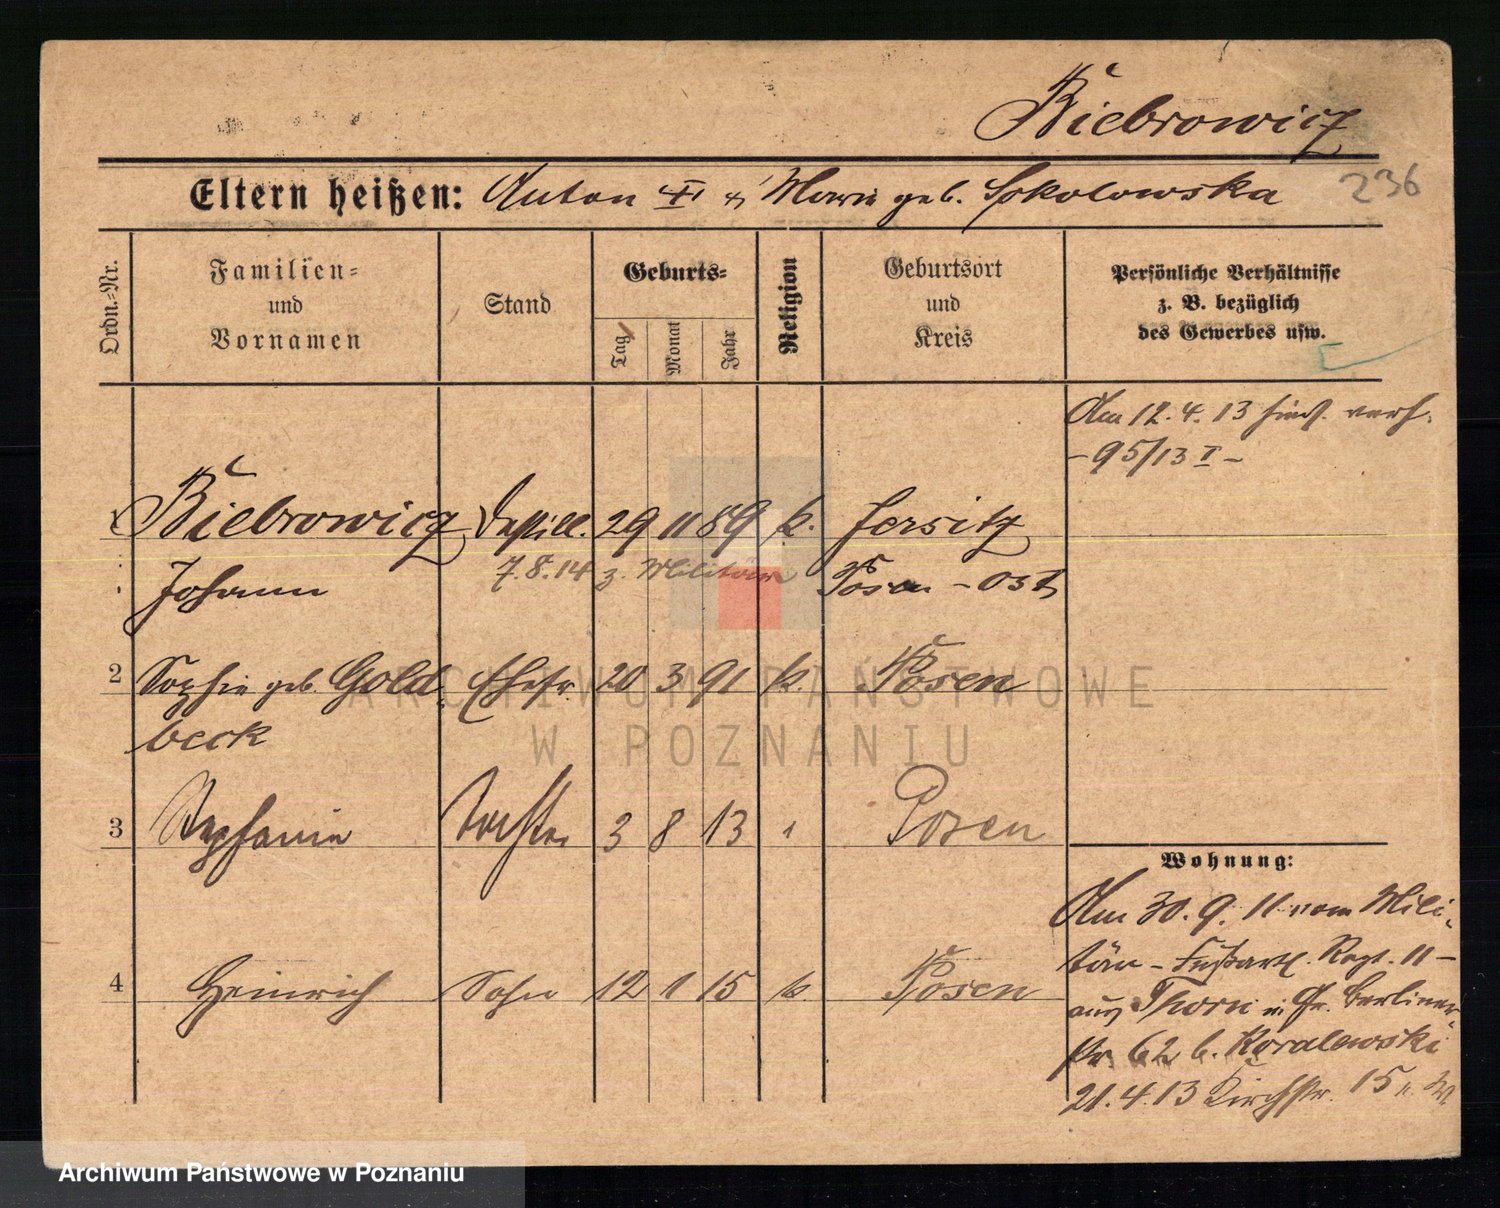 Biebrowicz
Eltern heißen: Anton u. Marie geb. Sokolowska
236
Ordn.-Nr.
Familien- und Vornamen
Stand
Geburts-
Tag Monat Jahr
Religion
Geburtsort und Kreis
Persönliche Verhältnisse
z. B. bezüglich
des Gewerbes usw.
Am 12.4.13 verh.
-95/13 I-
1 Biebrowicz Destill. 29 11 89 k. Jersitz
Johann 7.8.14 z. Militär Posen-Ost
2 Sophie geb. Gold Ehefr. 20 3 91 k. Posen
beck
3 Stephanie Tochter 3 8 13 Posen
4 Heinrich Sohn 12 1 15 k. Posen
Wohnung:
Am 30.9.11 vom Mili-
tär - Fußart. Regt. 11 -
aus Thorn n. Gr. Berliner
str. 62 b. Koralewski
21.4.13 Kirchstr. 15
ARCHIWUM PAŃSTWOWE
W POZNANIU
Archiwum Państwowe w Poznaniu